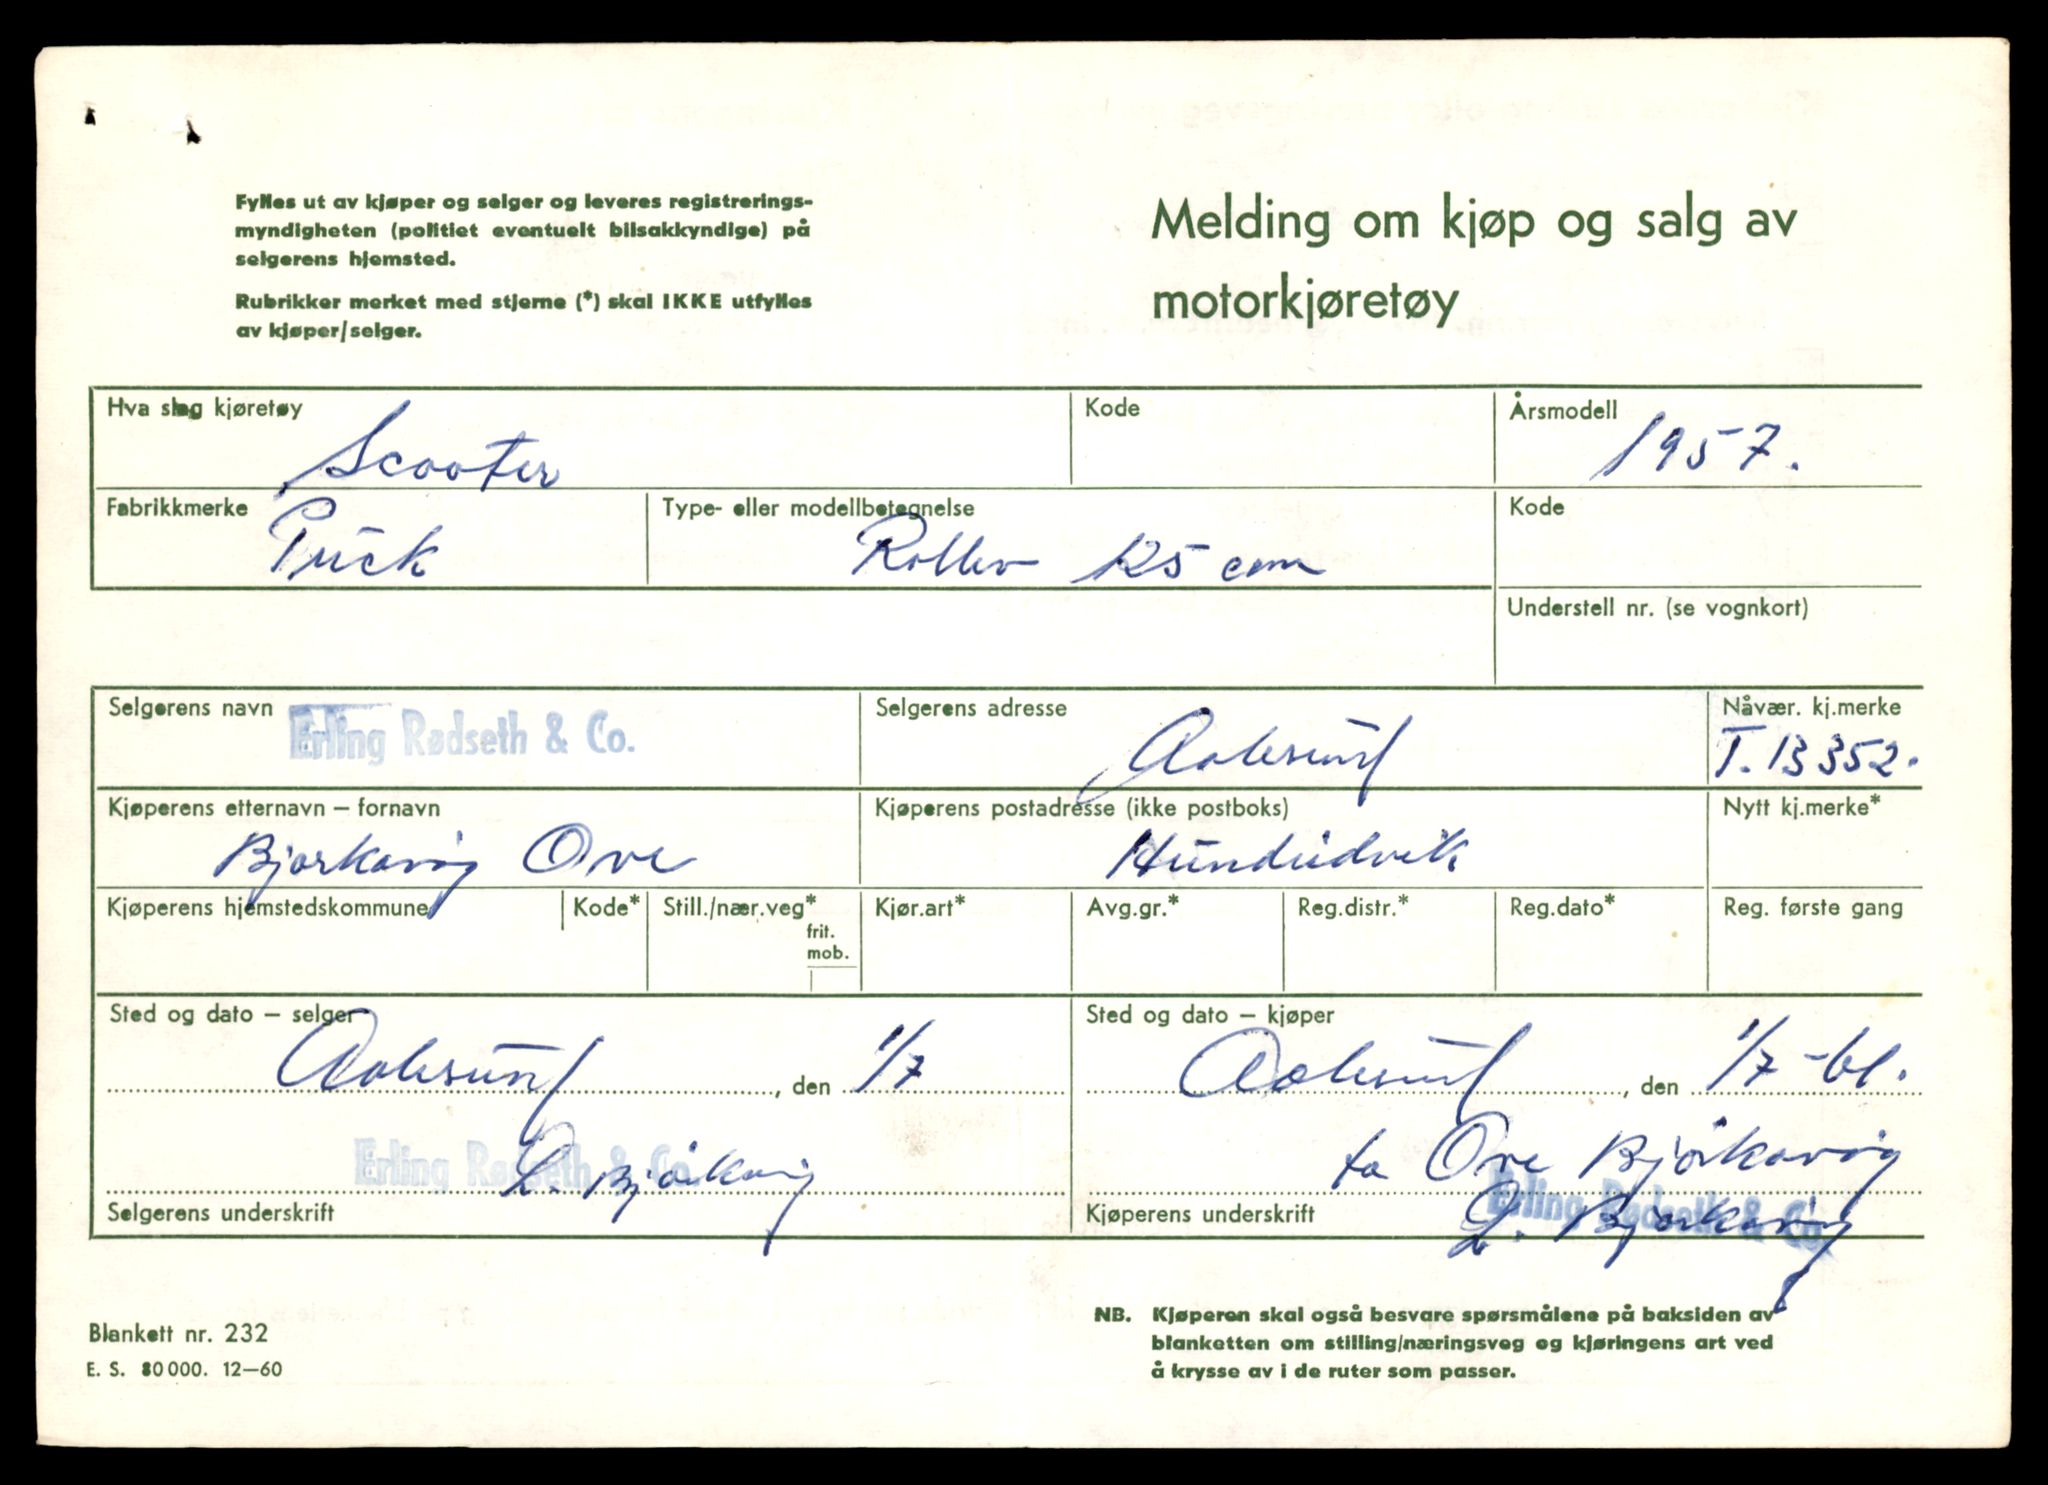 Fylles ut av kjøper og selger og leveres registrerings-
myndigheten (politiet eventuelt bilsakkyndige) på
selgerens hjemsted.
Rubrikker merket med stjerne (*) skal IKKE utfylles
av kjøper/selger.
Melding om kjøp og salg av
motorkjøretøy
Hva slag kjøretøy
Scooter
Kode
Årsmodell
1957.
Fabrikkmerke
Puck
Type- eller modellbetegnelse
Roller 125 ccm
Kode
Understell nr. (se vognkort)
Selgerens navn
Erling Rødseth & Co.
Selgerens adresse
Aalesund
Nåvær. kj.merke
T. 13352.
Kjøperens etternavn – fornavn
Bjørkavåg Ove
Kjøperens postadresse (ikke postboks)
Hundeidvik
Nytt kj.merke*
Kjøperens hjemstedskommune
Kode*
Still./nær.veg*
frit.
mob.
Kjør.art*
Avg.gr.*
Reg.distr.*
Reg.dato*
Reg. første gang
Sted og dato – selger
Aalesund, den 1/7
Erling Rødseth & Co.
L. Bjørkavåg
Selgerens underskrift
Sted og dato – kjøper
Aalesund, den 1/7-61.
fa Ove Bjørkavåg
Erling Rødseth & Co.
L. Bjørkavåg
Kjøperens underskrift
Blankett nr. 232
E. S. 80 000. 12–60
NB. Kjøperen skal også besvare spørsmålene på baksiden av
blanketten om stilling/næringsveg og kjøringens art ved
å krysse av i de ruter som passer.